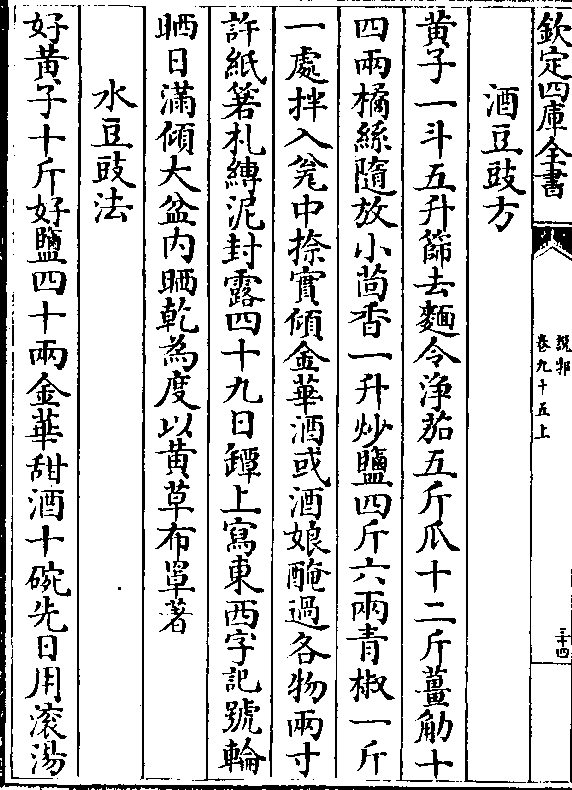 欽定四庫全書
說郛
卷九十五上
三十四
酒豆豉方
黃子一斗五升篩去麵令淨茄五斤瓜十二斤薑觔十
四兩橘絲隨放小茴香一升炒鹽四斤六兩青椒一斤
一處拌入瓮中捺實傾金華酒或酒娘醃過各物兩寸
許紙箬札縛泥封露四十九日鐔上寫東西字記號輪
晒日滿傾大盆內晒乾為度以黃草布罩著
水豆豉法
好黃子十斤好鹽四十兩金華甜酒十碗先日用滾湯